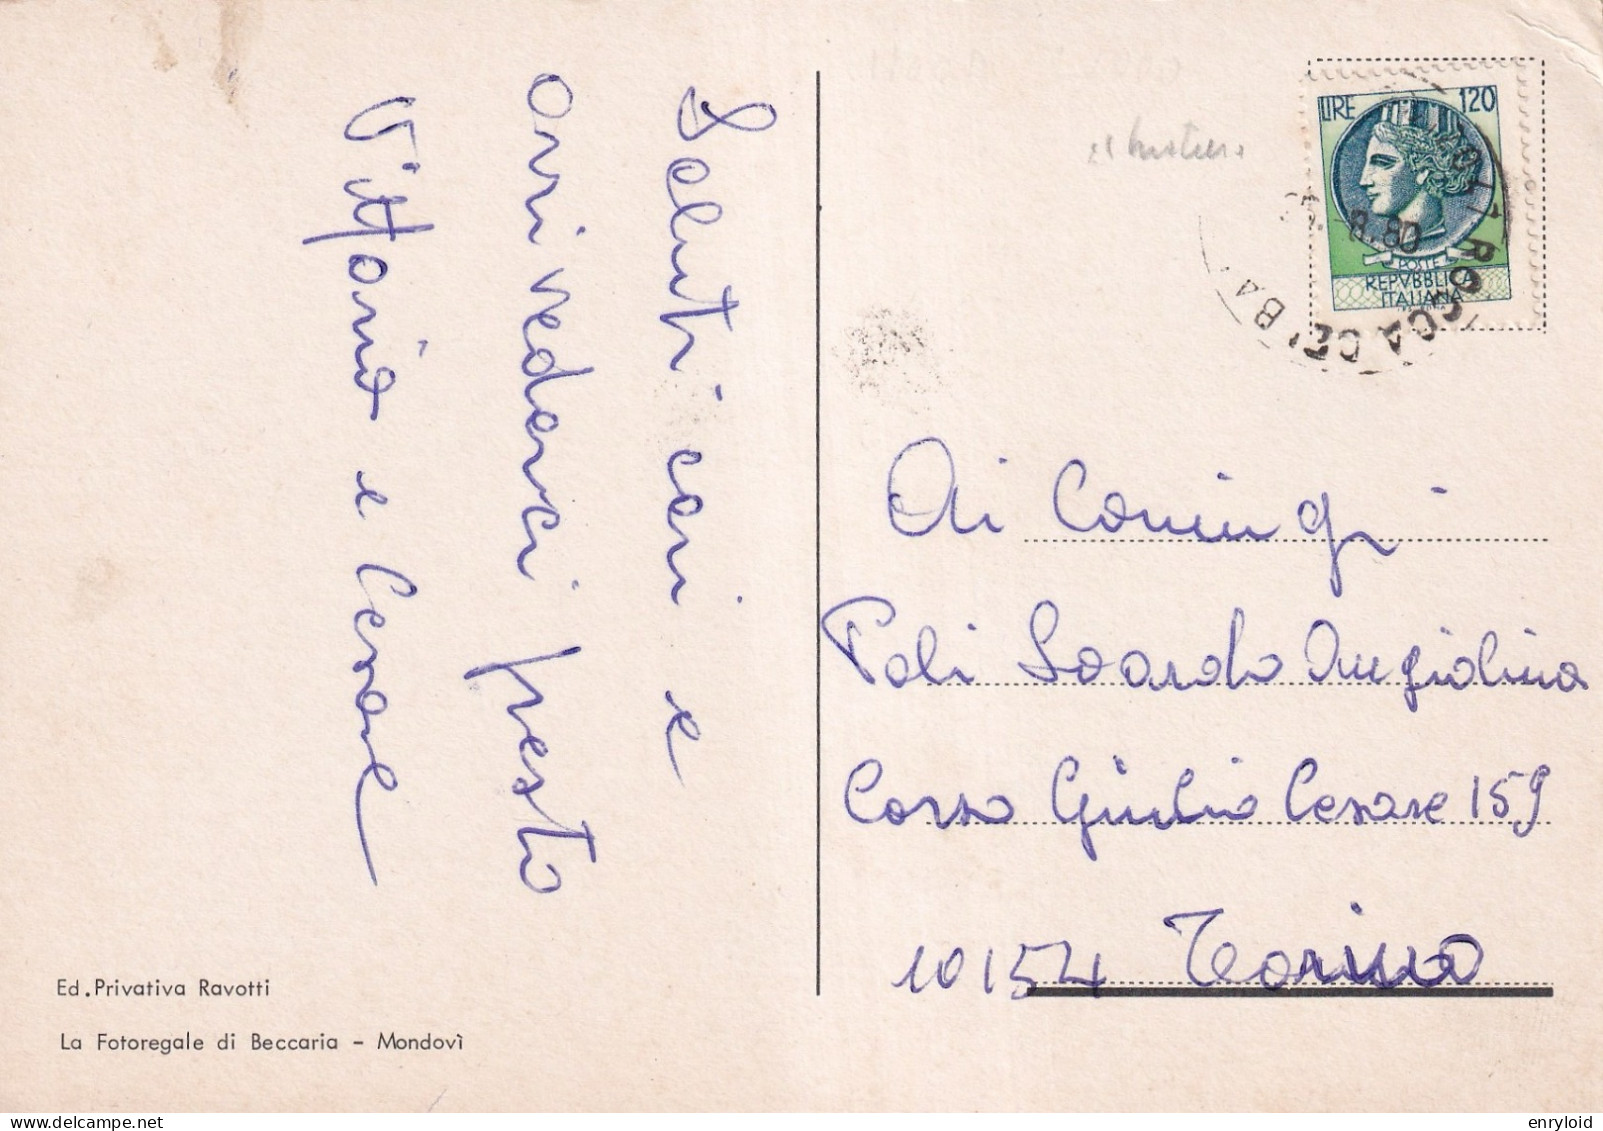 Saluti cari e
arrivederci presto
Vittorio e Cesare
Ed. Privativa Ravotti
La Fotoregale di Beccaria - Mondovì
LIRE 120
POSTE
REPVBBLICA
ITALIANA
8.80
ROCCA DE' BA
Ai Coniugi
Poli Loardo Angiolina
Corso Giulio Cesare 159
10154 Torino
enryloid